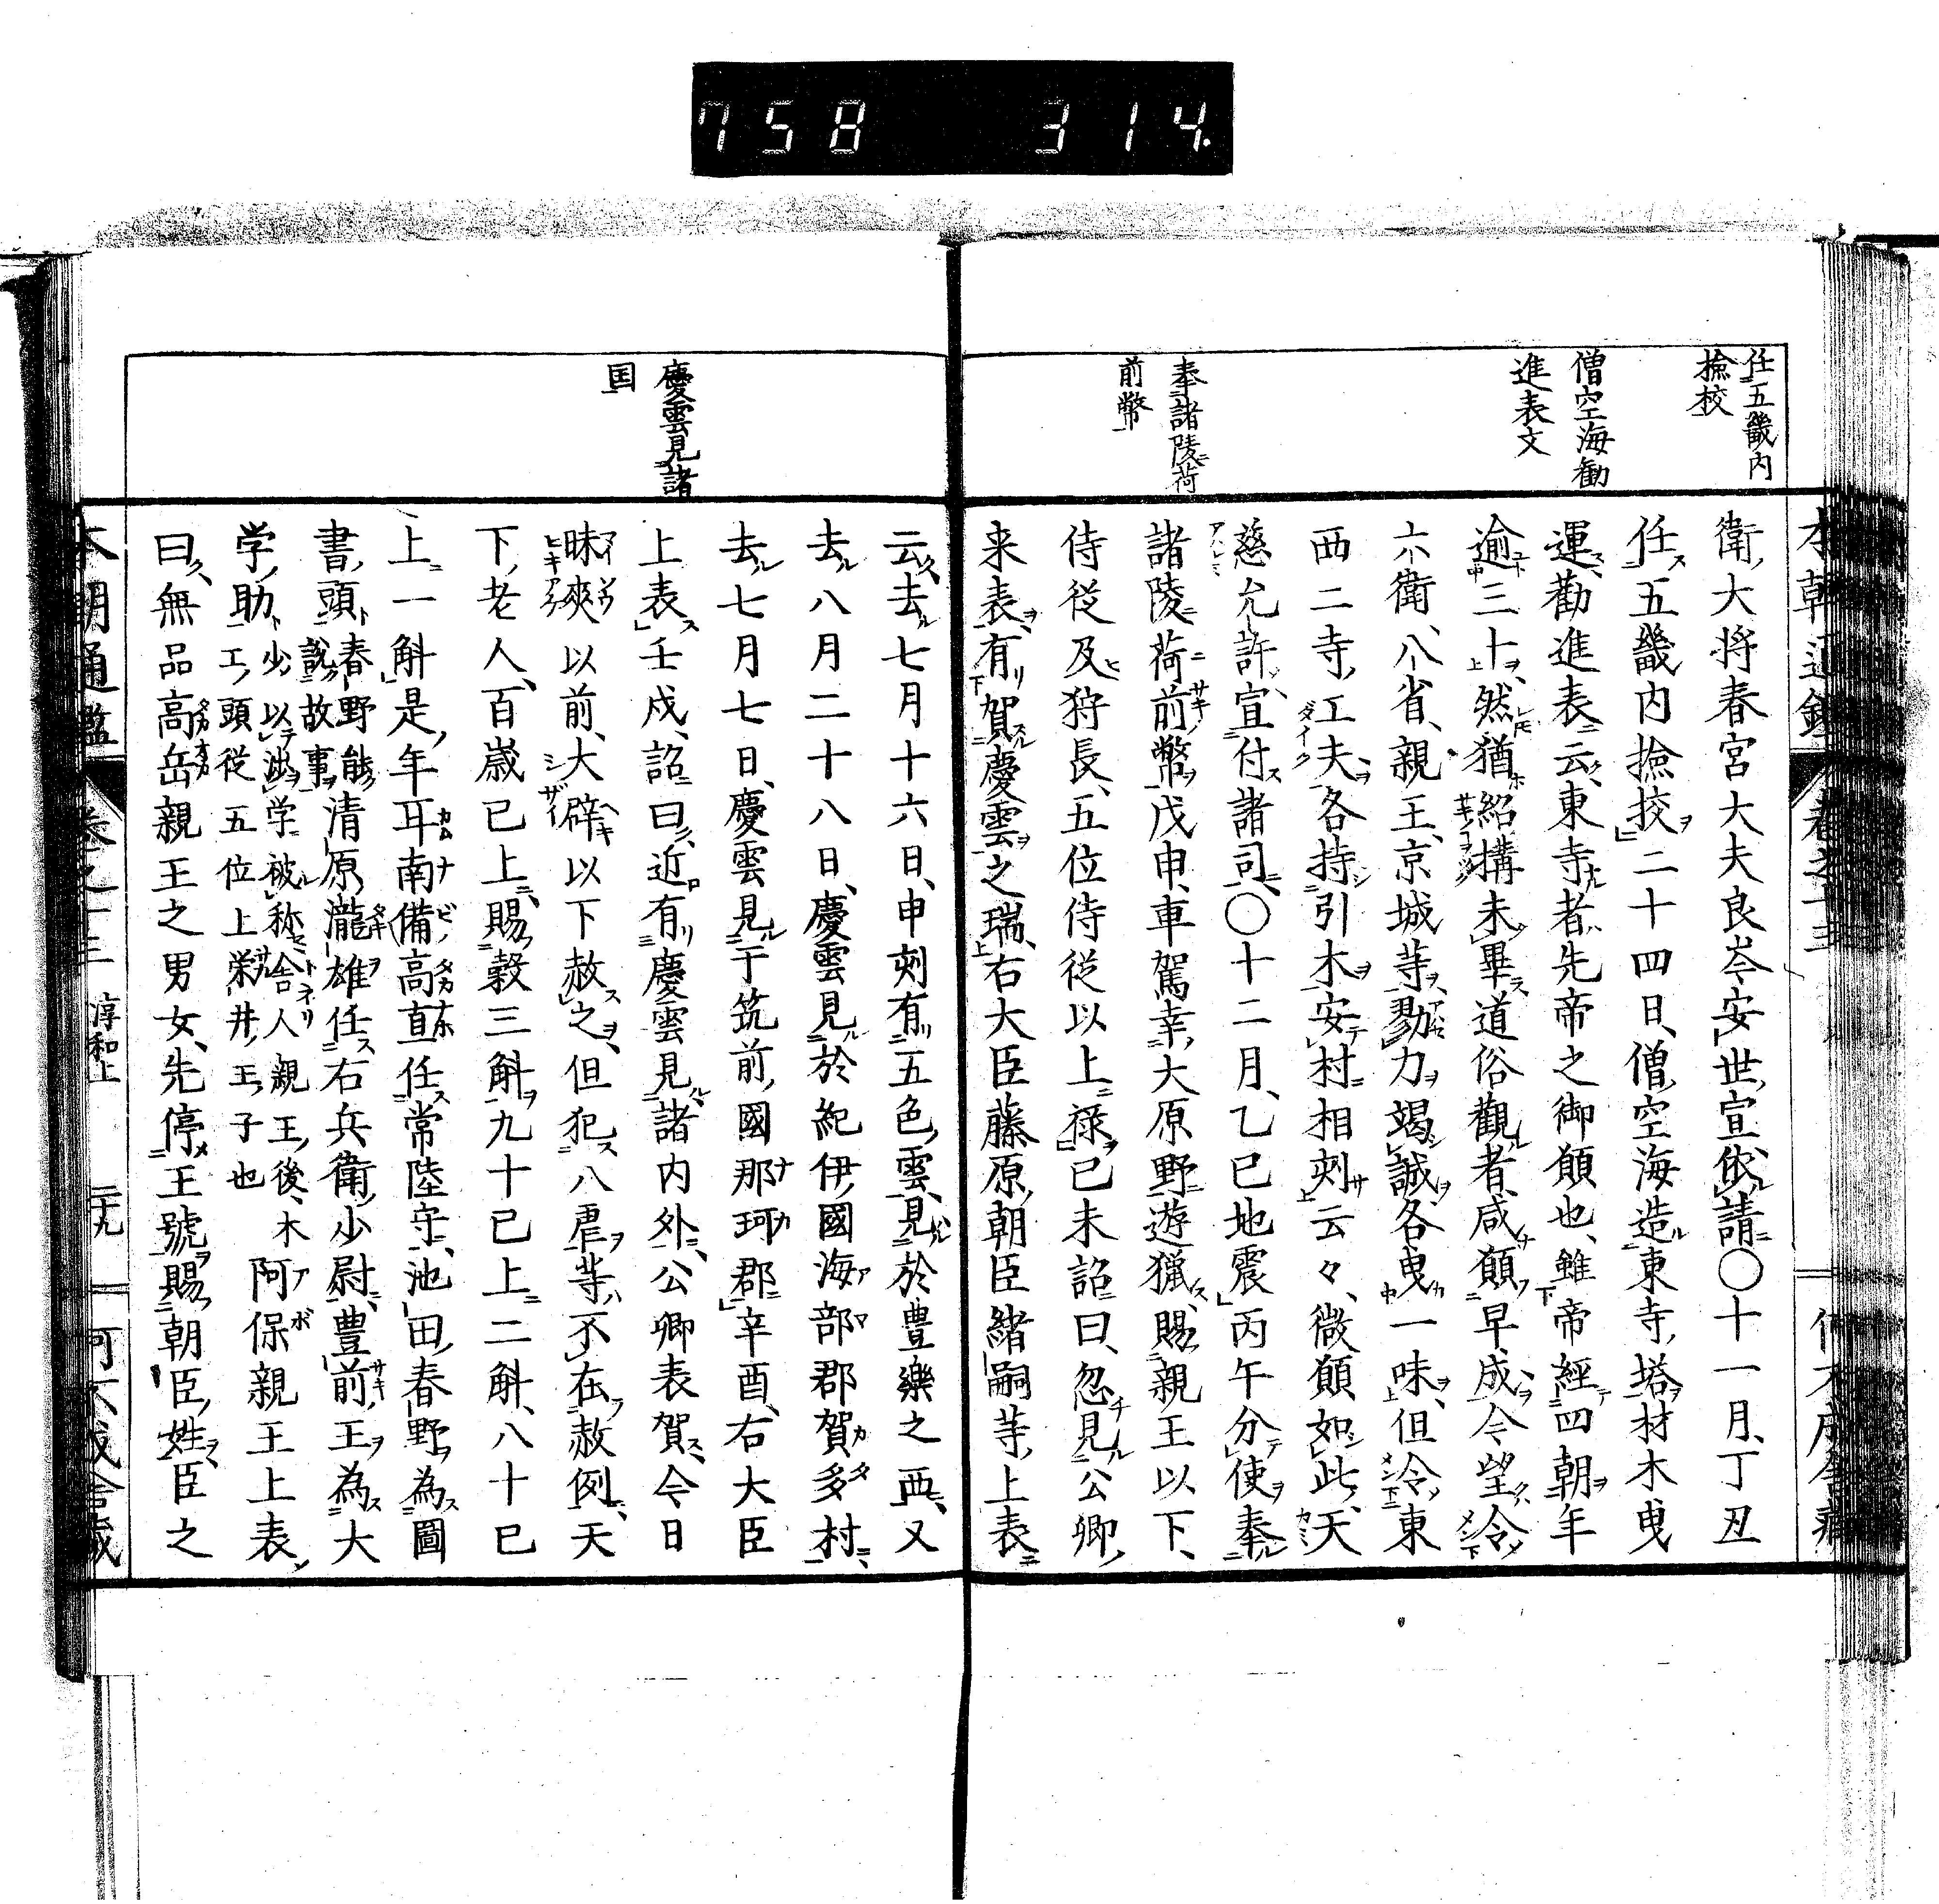 758 314.
任五畿内
撿校
僧空海勧
進表文
奉諸陵荷
前幣
衛大将春宮大夫良岑安世宣依請〇十一月丁丑
任五畿内撿挍二十四日僧空海造東寺塔材木曵
運勸進表云東寺者先帝之御願也雖帝經四朝年
逾三十然猶紹搆未畢道俗觀者咸願早成今望令
六衛八省親王京城等勠力竭誠各曵一味但令東
西二寺工夫各持引木安村相刾云々微願如此天
慈允許宣付諸司〇十二月乙巳地震丙午分使奉
諸陵荷前幣戊申車駕幸大原野遊猟賜親王以下
侍従及狩長五位侍従以上禄己未詔曰忽見公卿
来表有賀慶雲之瑞右大臣藤原朝臣緒嗣等上表
慶雲見諸
国
云去七月十六日申刻有五色雲見於豊樂之西又
去八月二十八日慶雲見於紀伊國海部郡賀多村
去七月七日慶雲見于筑前國那珂郡辛酉右大臣
上表壬戌詔曰近有慶雲見諸内外公卿表賀今日
昧爽以前大辟以下赦之但犯八虐等不在赦例天
下老人百歳已上賜穀三斛九十已上二斛八十已
上一斛是年耳南備高直任常陸守池田春野為圖
書頭春野能說故事清原瀧雄任右兵衛少尉豊前王為大
学助少以此学被称舎人親王後木工頭従五位上栄井王子也阿保親王上表
曰無品高岳親王之男女先停王號賜朝臣姓臣之
本朝通鑑 巻之十三 淳和上 二十九